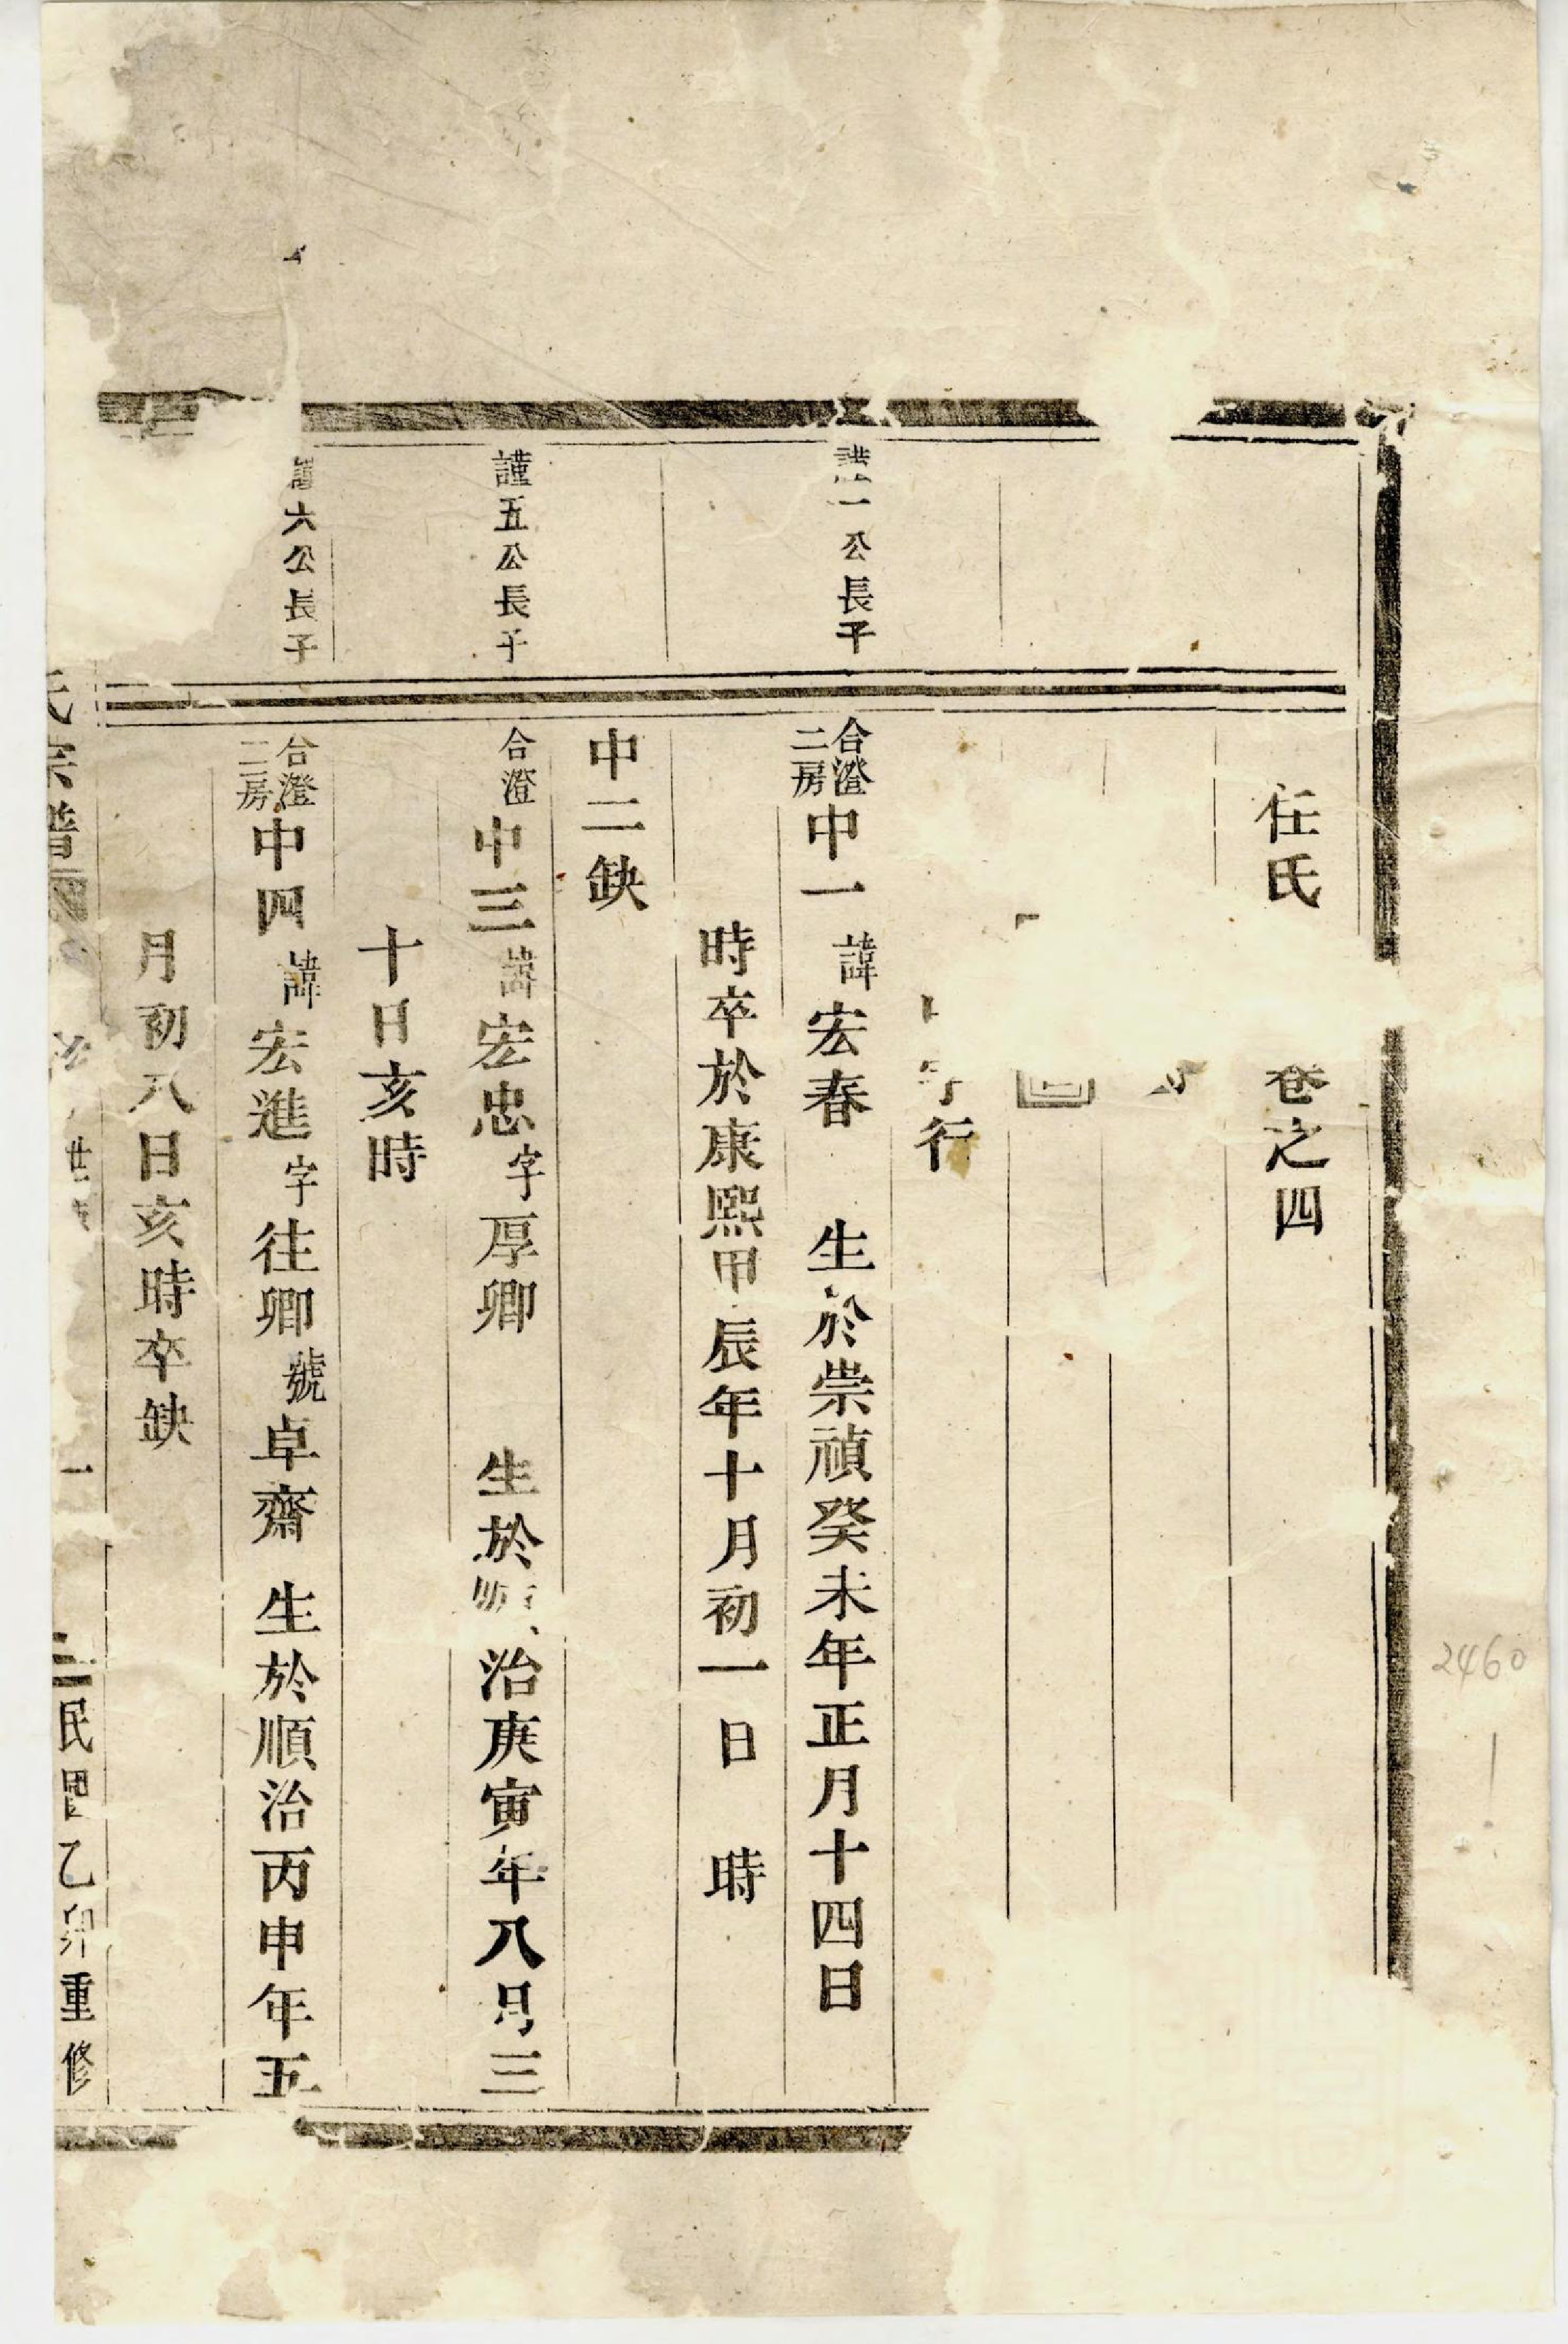 任氏 卷之四
行
謹一公長子
合澄二房 中一 諱宏春 生於崇禎癸未年正月十四日
時卒於康熙甲辰年十月初一日 時
中二缺
謹五公長子
合澄 中三 諱宏忠 字厚卿 生於順治庚寅年八月三
十日亥時
謹六公長子
合澄二房 中四 諱宏進 字往卿 號卓齋 生於順治丙申年五
月初八日亥時卒缺
氏宗譜 世 一 民國乙卯重修
2460